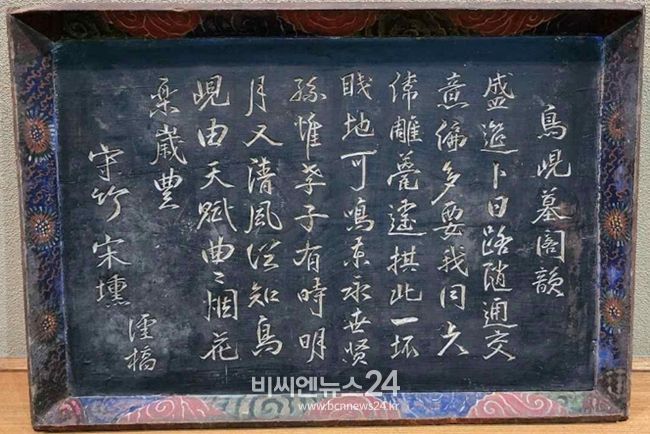 鳥峴墓閣韻
盛遊卜日路隨通交
意偏多要我同六
偉雕甍遽拱此一坏
賤地可鳴東永世賢
孫惟孝子有時明
月又清風從知鳥
峴由天賦曲〻烟花
樂歲豊
守竹 宋壎
謹稿
비씨엔뉴스24
www.bcnnews24.kr